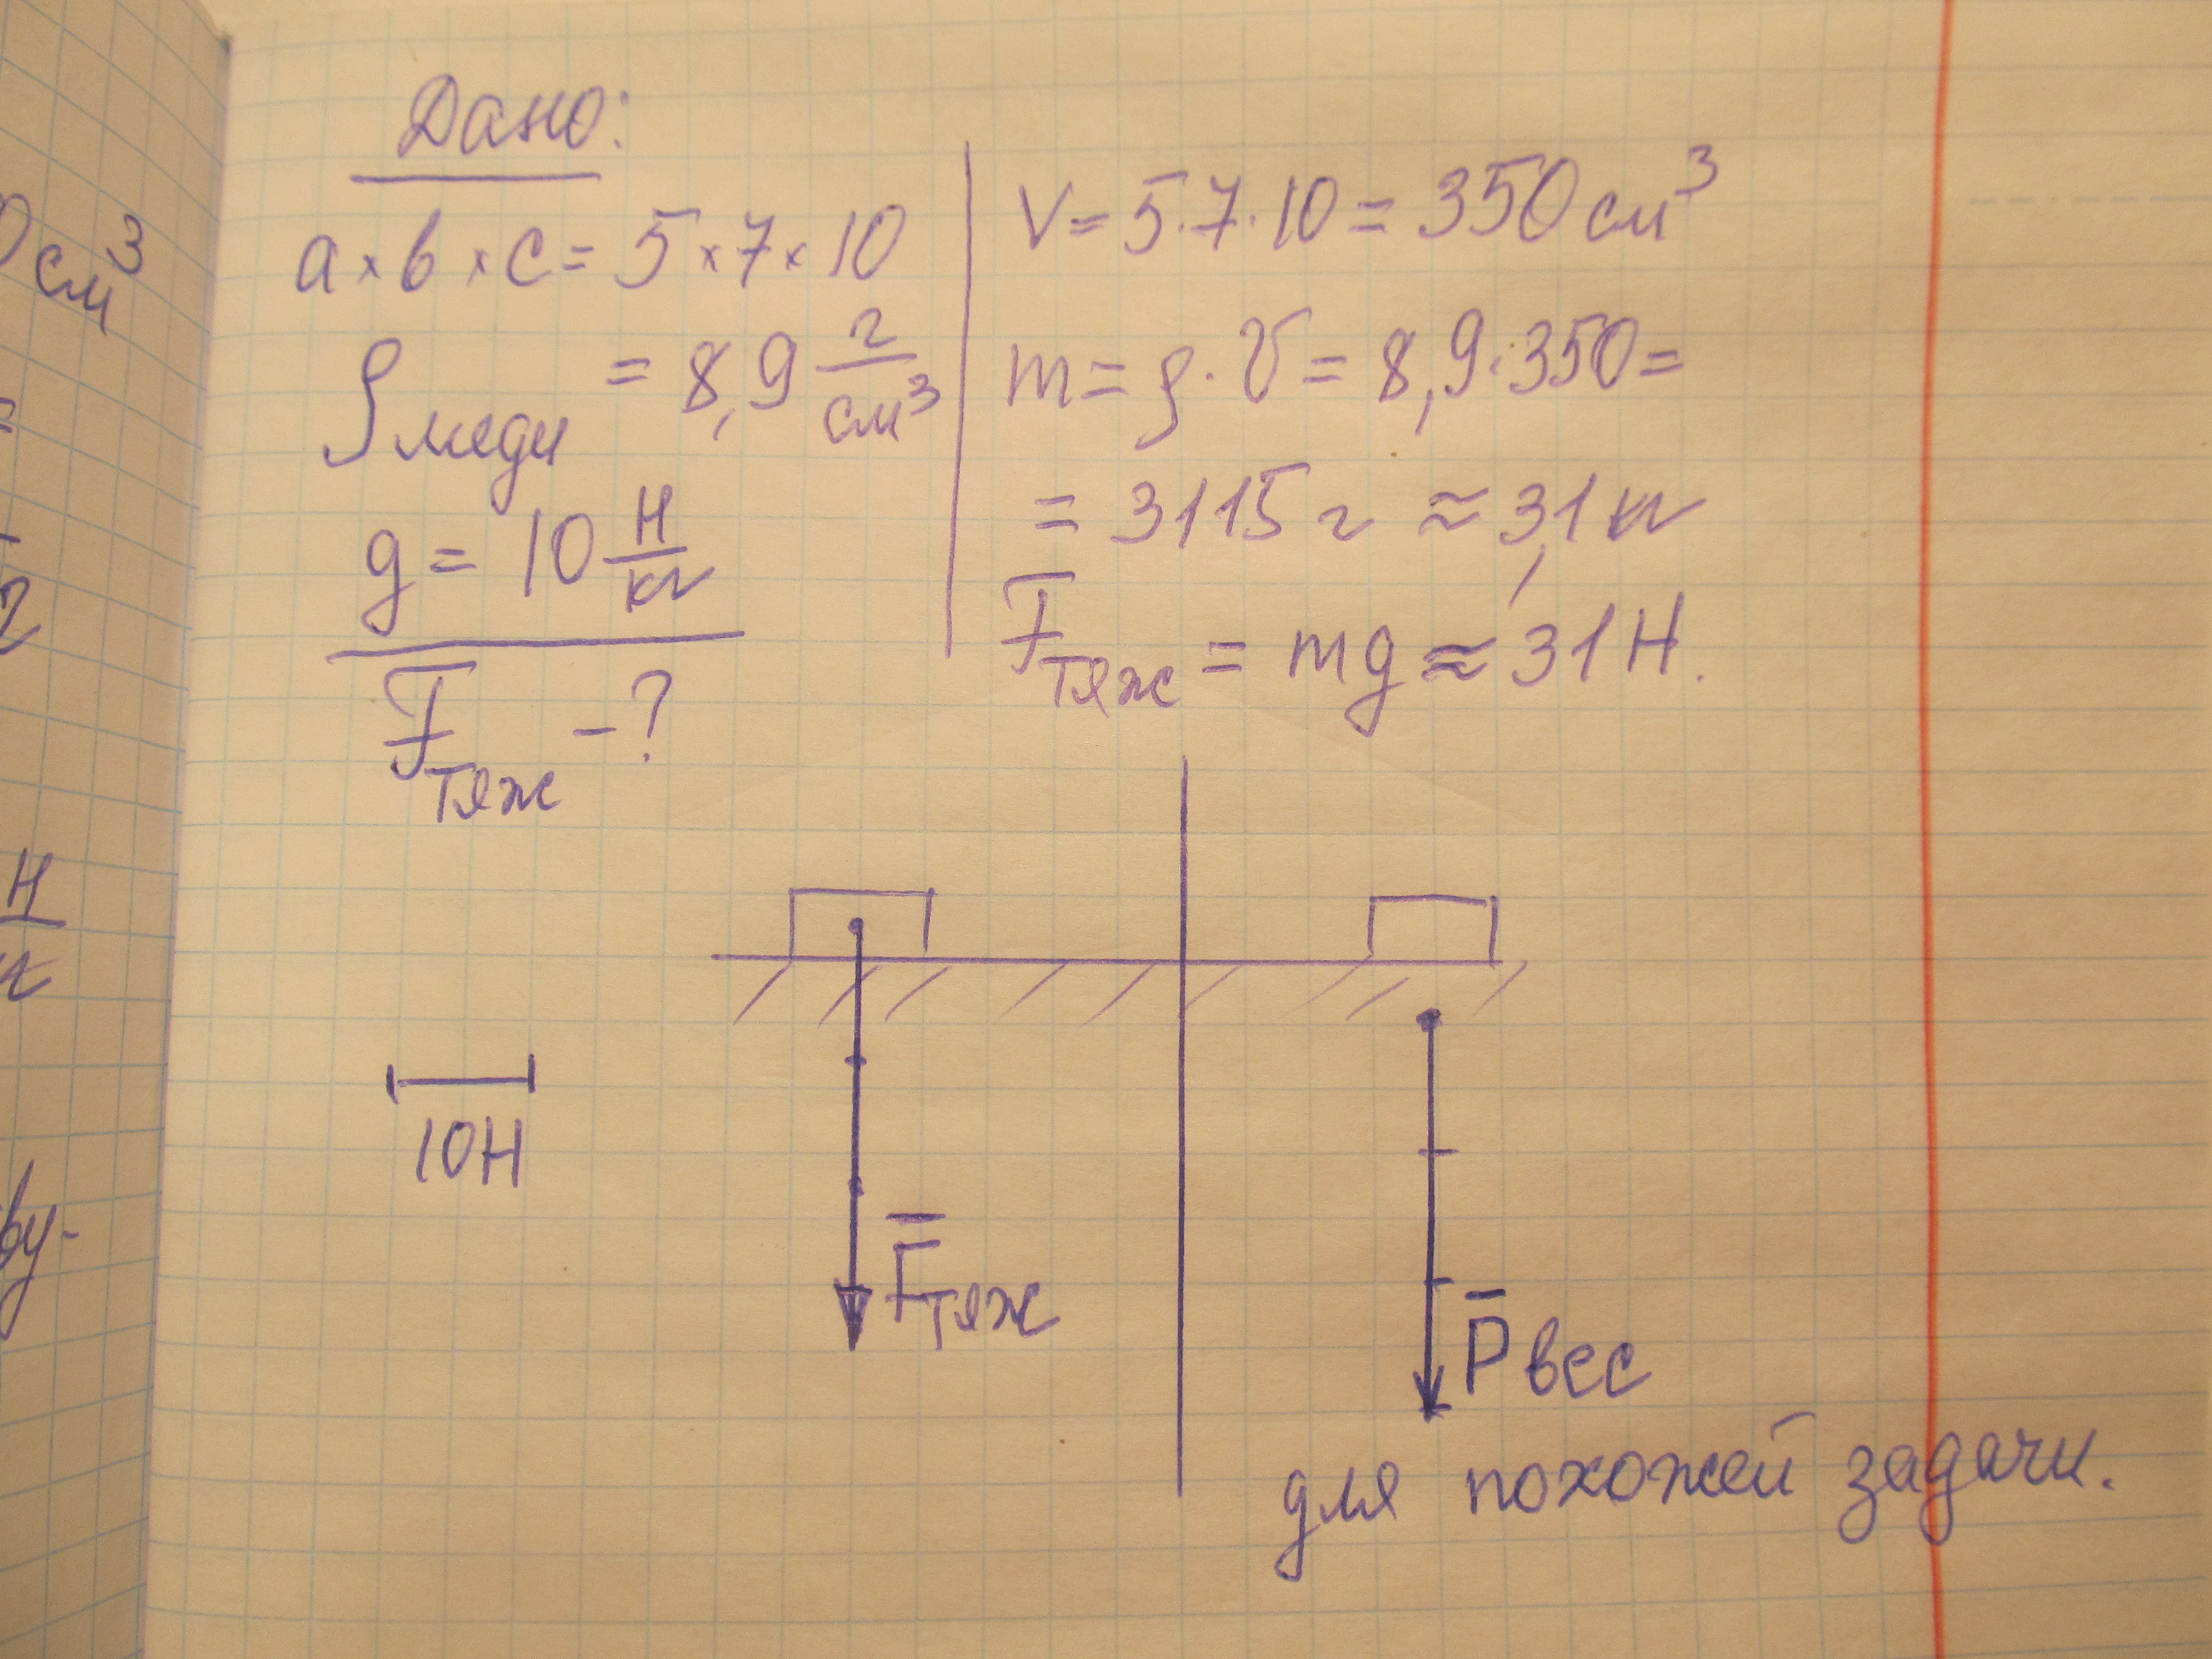 0 см³
=
Н
ву-
Дано:
a × b × c = 5 × 7 × 10
ρ меди = 8,9 г/см³
g = 10 Н/кг
F тяж - ?
V = 5 · 7 · 10 = 350 см³
m = ρ · V = 8,9 · 350 =
= 3115 г ≈ 3,1 кг
F тяж = mg ≈ 31 Н.
10Н
F̅ тяж
P̅ вес
для похожей задачи.